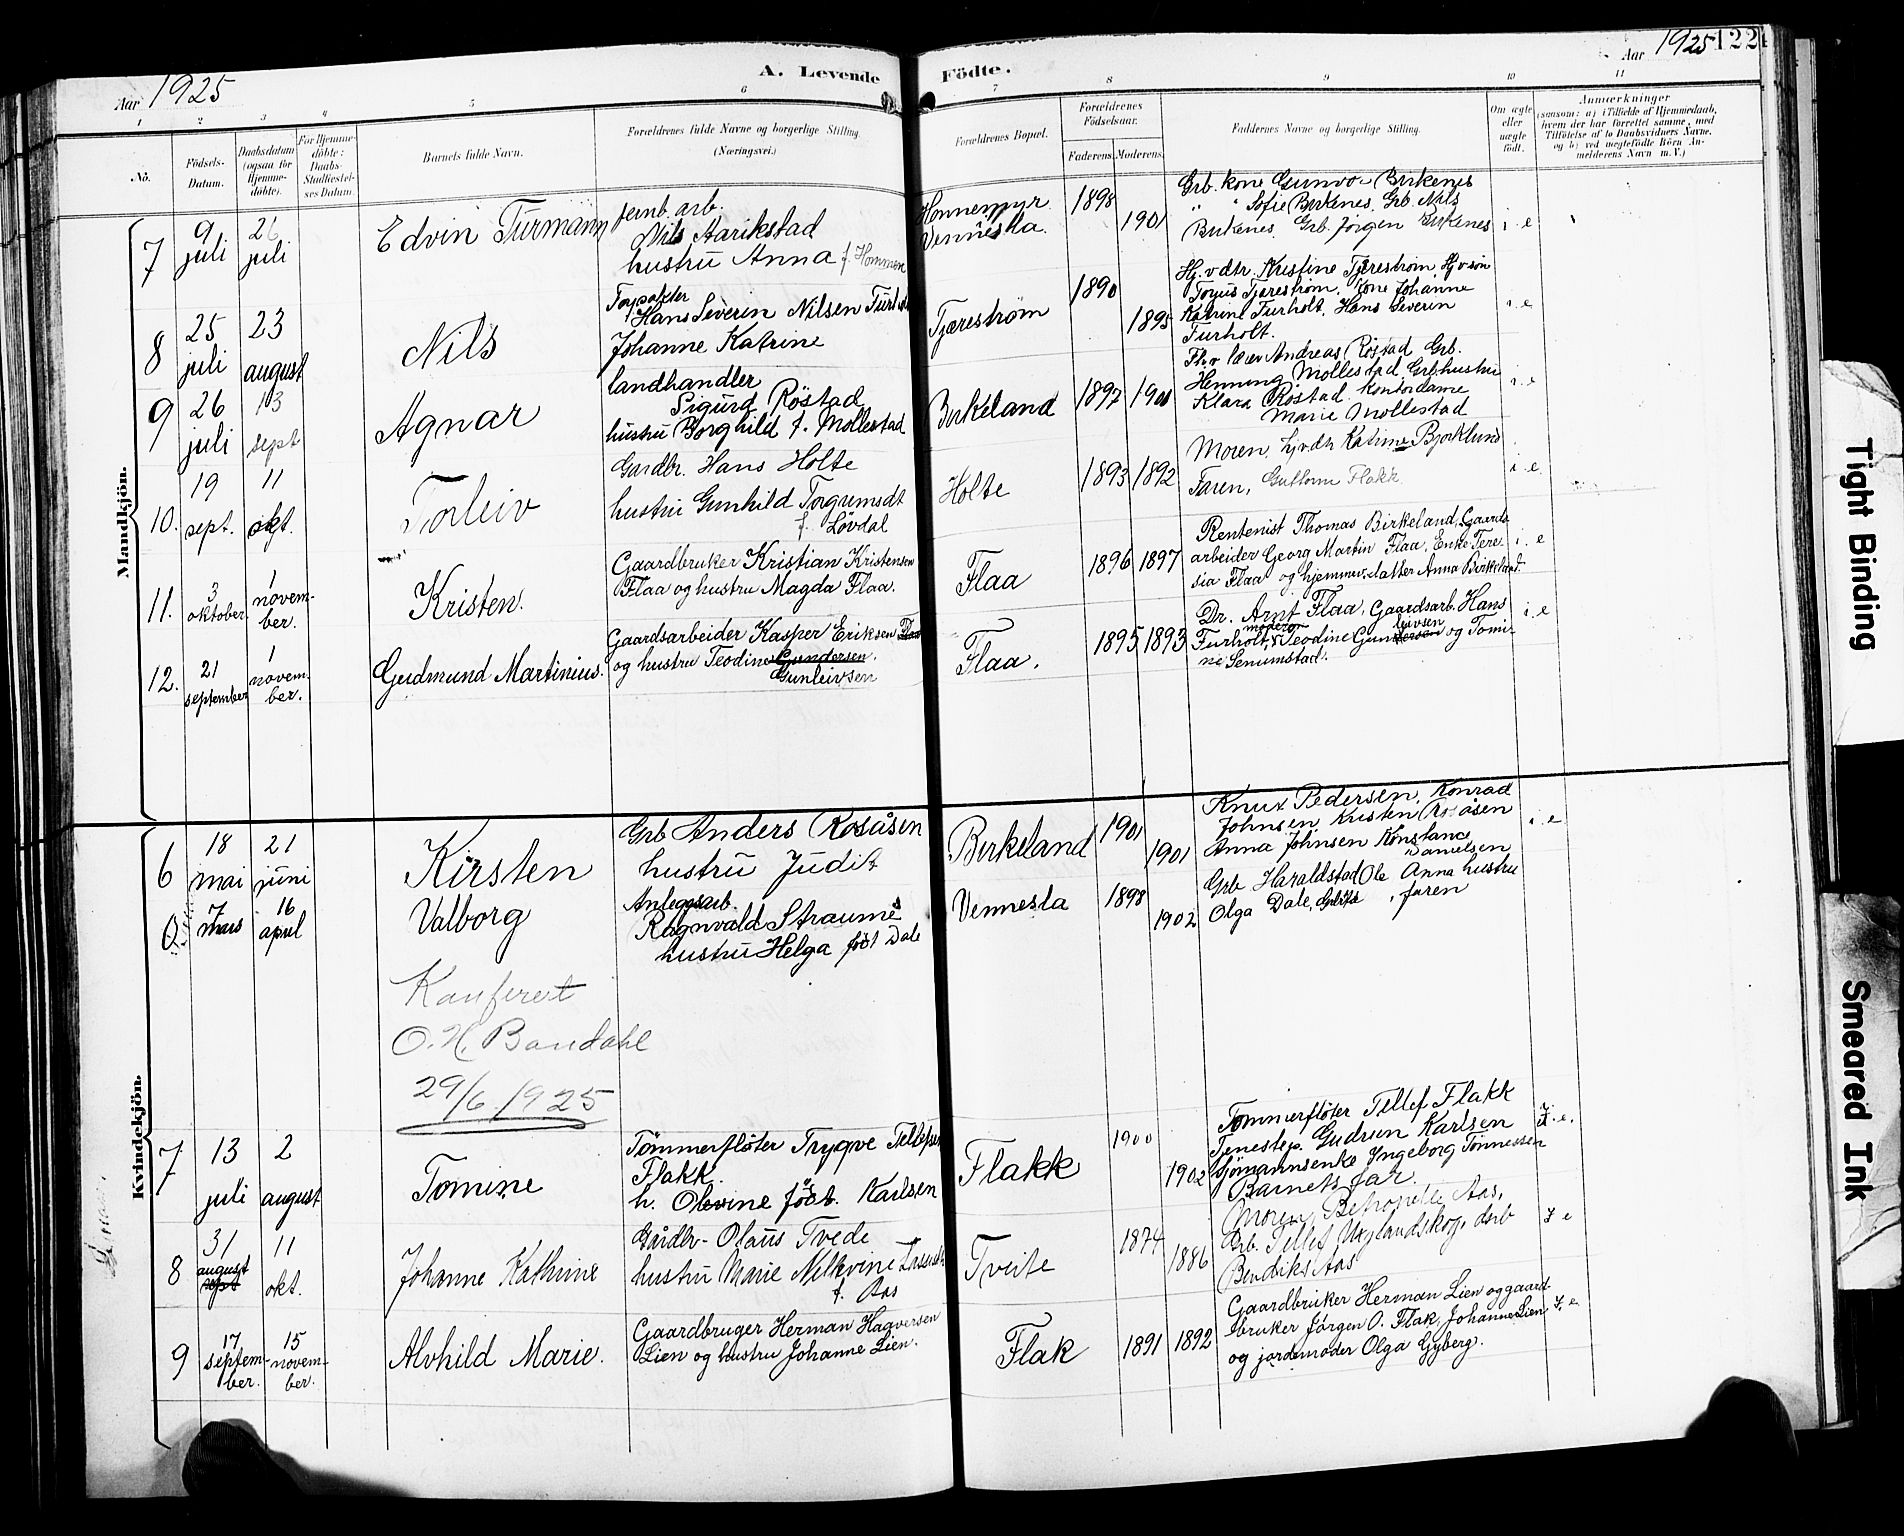 Aar 1925
A. Levende
Födte.
Aar 1925
122
1 2 3 4 5 6 7 8 9 10 11
No.
Födsels-Datum.
Daabsdatum (ogsaa for Hjemme-döbte).
For Hjemme-döbte: Daabs-Stadfæstel-ses Datum.
Barnets fulde Navn.
Forældrenes fulde Navne og borgerlige Stilling.
(Næringsvei.)
Forældrenes Bopæl.
Forældrenes Födselsaar.
Faderens. Moderens.
Faddernes Navne og borgerlige Stilling.
Om ægte eller uægte födt.
Anmærkninger
(saasom: a) i Tilfælde af Hjemmedaab, hvem der har forrettet samme, med Tilföielse af to Daabsvidners Navne, og b) ved uægtefödte Börn An-melderens Navn m. V.)
Mandkjön.
7
9 juli
26 juli
Edvin Turmann
Jernb. arb.
Nils Aarikstad
hustru Anna f. Hommen
Honnemyr
Vennesla.
1898
1901
Grb. kone Gunvor Birkenes
" " Sofie Birkenes. Grb. Nils
Birkenes. Grb. Jörgen Birkenes
i. e
8
25 juli
23 august
Nils
Hans Severin Nilsen
Johanne Katrine
Tjærestrøm
1890
1895
Hj.v. dtr. Kristine Tjærestrøm. Hj.v søn
Tjærestrøm. Kone Johanne
Katrine Furholt. Hans Severin
Furholt.
i. e
9
26 juli
13 sept
Agnar
landhandler
Sigurd Röstad
hustru Borghild f. Mollestad
Birkeland
1892
Fhv. lærer Andreas Röstad Grb.
Henning Mollestad Grb.hustru
Klara Röstad. Kontordame
Marie Mollestad
i. e
10.
19 sept.
11 okt.
Torleiv
Gardbr. Hans Holte
hustru Gunhild Torgrimsdt
f. Løvdal
Holte
1893 1892
Moren, hj.v.dtr Katrine Bjorklund
Faren, Guttorm Flakk.
i. e.
11.
3 oktober
1 novem-
ber.
Kristen.
Gaardbruker Kristian Kristensen
Flaa og hustru Magda Flaa.
Flaa
1896 1897
Rentenist Thomas Birkeland, Gaards
arbeider Georg Martin Flaa, Enke Tere-
sia Flaa og hjemmev. datter Anna Birkeland.
i. e
12.
21 september
1 novem-
ber.
Gudmund Martinius.
Gaardsarbeider Kasper Eriksen Flaa
og hustru Teodine Gundersen.
Gunleivsen
Flaa.
1895 1893
Dr. Arnt Flaa, Gaardsarb. Hans
Furholt, moderen Teodine Gundersen leivsen og Tomi-
ne Senumstad.
i. e
Kvindekjön.
6
18 mai
21 juni
Kirsten
Grb Anders Rosåsen
hustru Judit
Birkeland
1901
1901
Knut Pedersen, Konrad
Johnsen, Kristen Rosåsen
Anna Johnsen Konstance
Danielsen
i. e
7 mars
16 april
Valborg
Anleggsarb.
Ragnvald Straume
hustru Helga født Dale
Vennesla
1898
1902
Grb Haraldstad Ole Anna hustru
Olga Dale, , faren
Konferert
O. H. Bandahl
29/6 1925
7
13 juli
2 august
Tomine
Tömmerflöter Trygve Tellefsen
Flakk.
h. Olevine født. Karlsen
Flakk
1900
1902
Tömmerflöter Tellef Flakk
Tjenestep. Gudrun Karlsen
Sjömannsenke Ingeborg Tönnessen
Barnets far.
i. e.
8
31 august
sept
11 okt.
Johanne Kathrine
Gårdbr- Olaus Tvede
hustru Marie
f. Aas
Tveite
1874
1886
Moren, Aas,
Grb. Tellef
Bendiks Aas
i. e
9
17 septem-
ber.
15 novem-
ber.
Alvhild Marie.
Gaardbruger Herman Haaversen
Lien og hustru Johanne Lien.
Flak
1891 1892
Gaardbruker Herman Lien og gaard-
bruker Jörgen O. Flak, Johanne Lien
og jordemoder Olga Gyberg.
i. e
Tight Binding
Smeared Ink